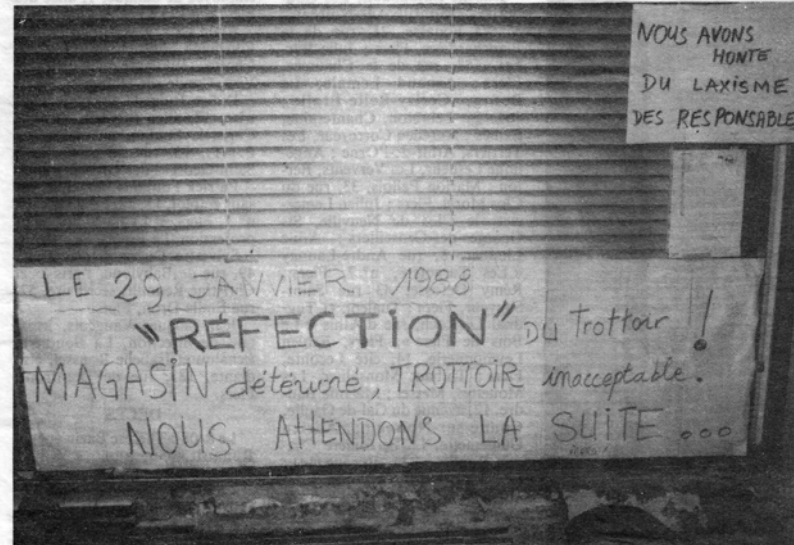 NOUS AVONS
HONTE
DU LAXISME
DES RESPONSABLE
LE 29 JANVIER 1988
"RÉFECTION" DU Trottoir !
MAGASIN détérioré, TROTTOIR inacceptable.
NOUS ATTENDONS LA SUITE ...